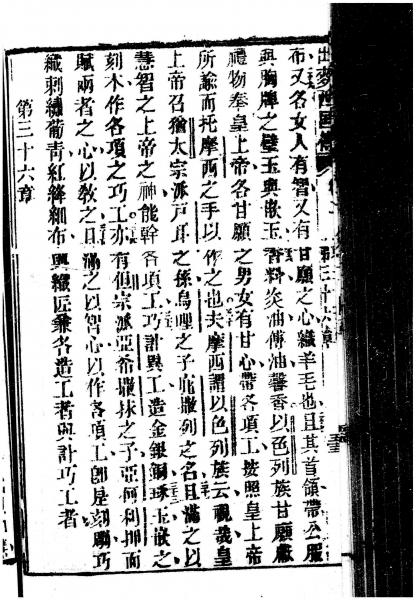 出麥西國傳
布又各女人有智又有甘願之心織羊毛也且其首領帶公服
與胸牌之璧玉與嵌玉香料炎油傅油馨香以色列族甘願厰
禮物奉皇上帝各甘願之男女有甘心帶各項工按照皇上帝
所諭而托摩西之手以作之也夫摩西謂以色列族云視哉皇
上帝召猶太宗派戸耳之孫烏哩之子庇撒列之名且滿之以
慧智之上帝之神能幹各項工巧計異工造金銀銅琢玉嵌之
刻木作各項之巧工亦有但宗派亞希撒抹之子亞何利押而
賦兩者之心以敎之且滿之以智心以作各項工卽是刻雕巧
織刺繡葡青紅絳細布與織匠兼各造工者與計巧工者
第三十六章